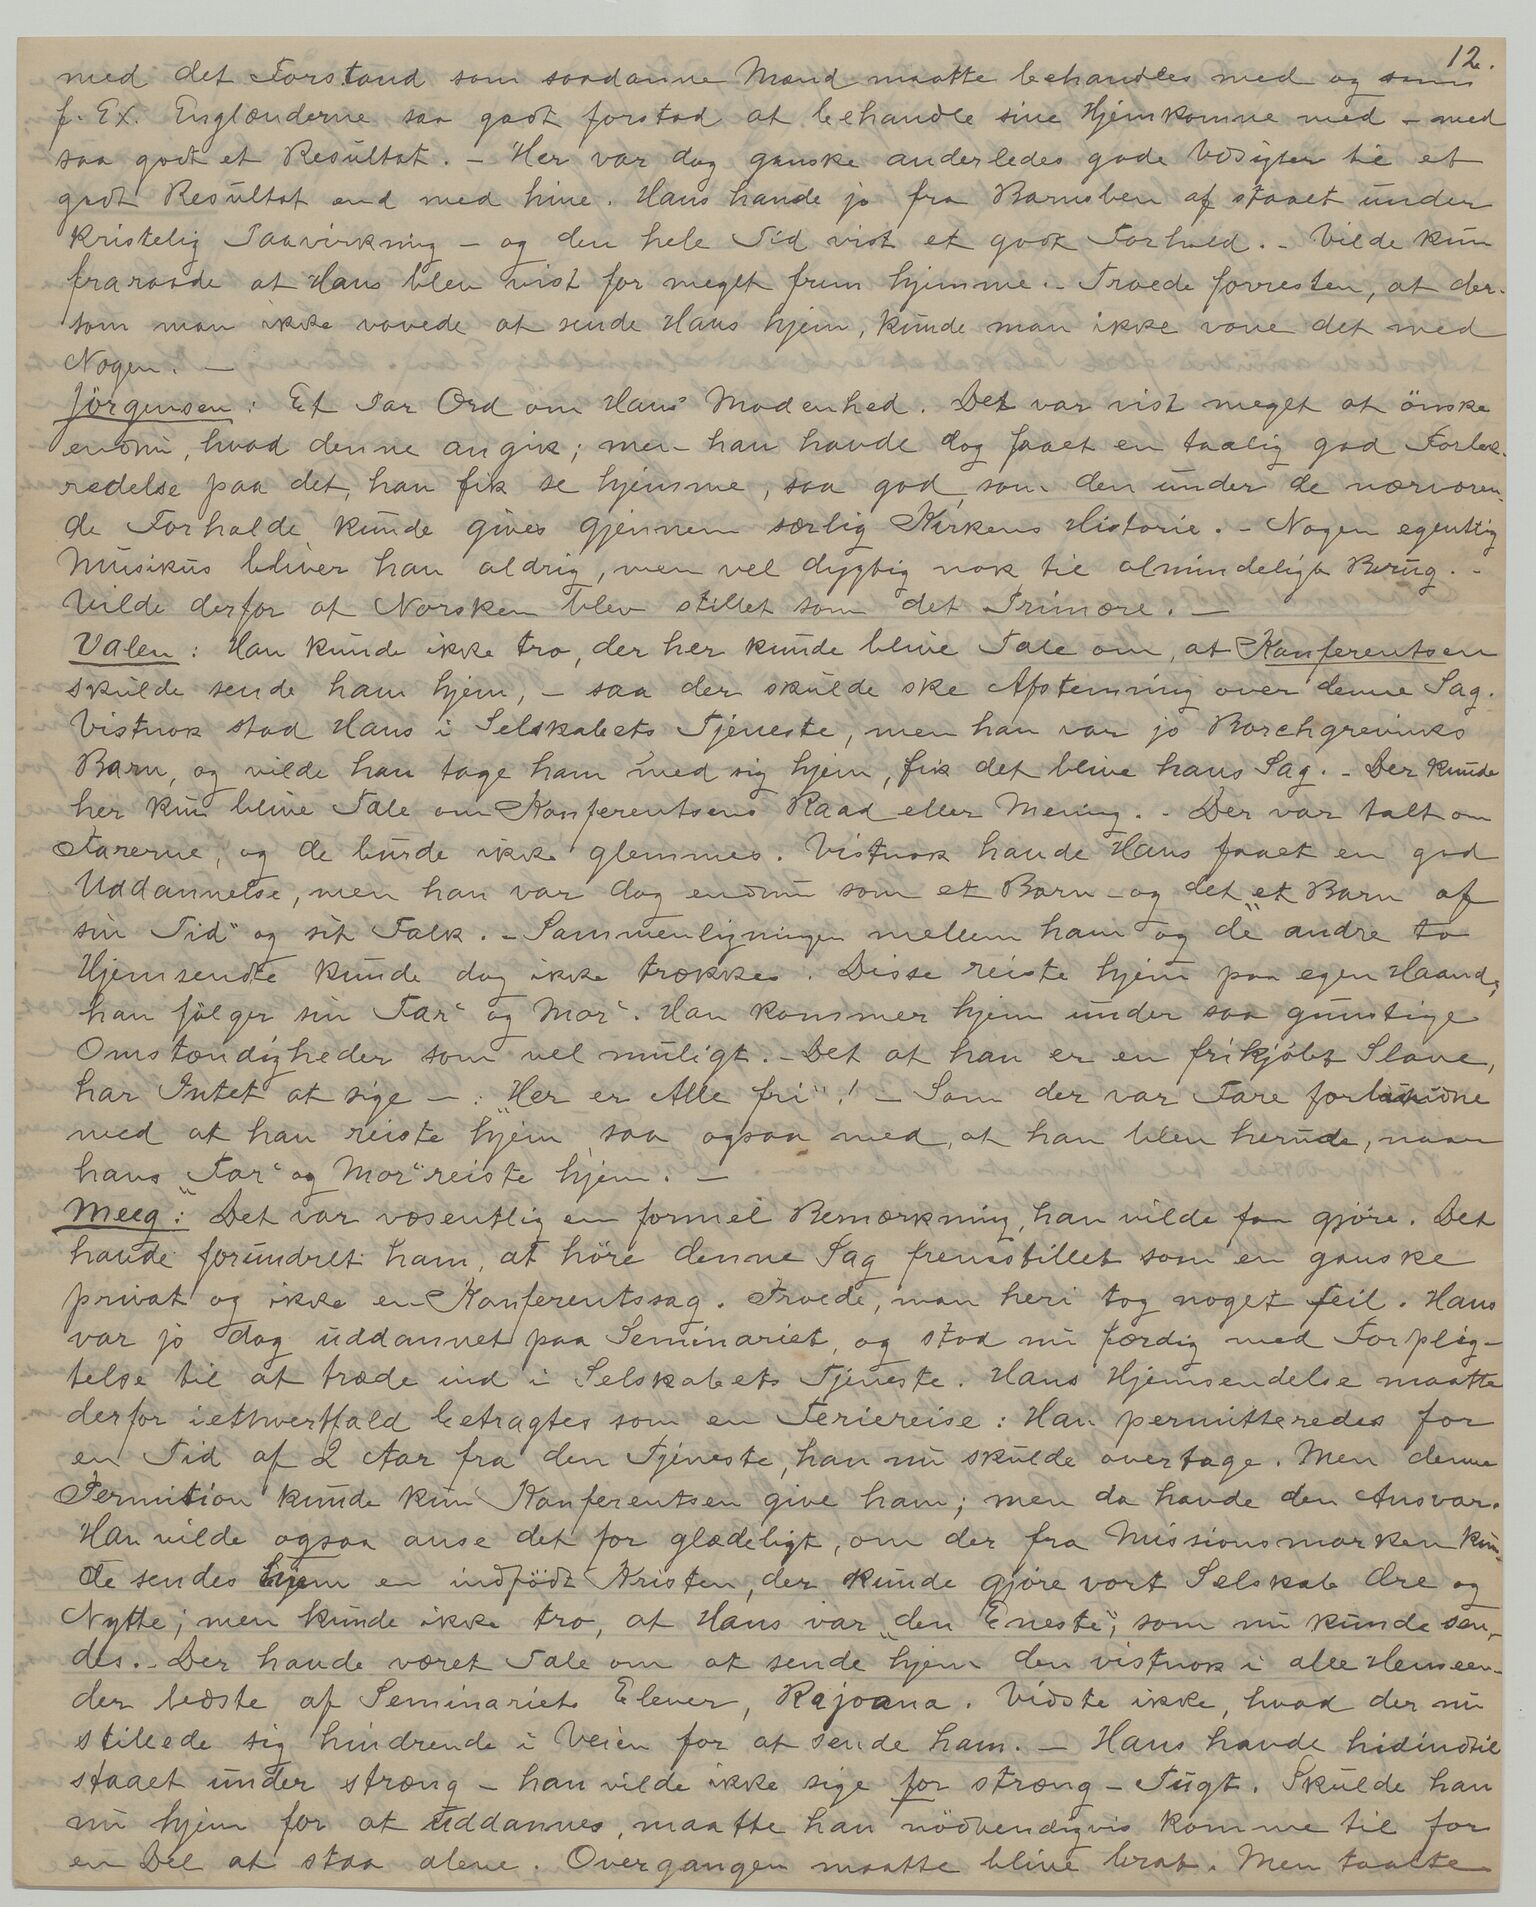 12.
med det Forstand som saadanne Mænd maatte behandles med og som
f. Ex. Englænderne saa godt forstod at behandle sine Hjemkomne med – med
saa godt et Resultat. – Her var dog ganske anderledes gode Udsigter til et
godt Resultat end med hine. Hans havde jo fra Barnsben af staaet under
kristelig Paavirkning – og den hele Tid vist et godt Forhold. – Vilde kun
fraraade at Hans blev vist for meget frem hjemme. – Troede forresten, at der-
som man ikke vovede at sende Hans hjem, kunde man ikke vove det med
Nogen. –
Jörgensen: Et Par Ord om Hans' Modenhed. Det var vist meget at önske
endnu, hvad denne angik; men han havde dog faaet en taalig god Forbe-
redelse paa det, han fik se hjemme, saa god som den under de nærværen-
de Forholde kunde gives gjennem særlig Kirkens Historie. – Nogen egentlig
Musikus bliver han aldrig, men vel dygtig nok til almindeligt Brug. –
Vilde derfor at Norsken blev stillet som det Primære. –
Valen: Han kunde ikke tro, der her kunde blive Tale om, at Konferentsen
skulde sende ham hjem, – saa der skulde ske Afstemning over denne Sag.
Vistnok stod Hans i Selskabets Tjeneste, men han var jo Borchgrevinks
Barn, og vilde han tage ham med sig hjem, fik det blive hans Sag. – Der kunde
her kun blive Tale om Konferentsens Raad eller Mening. – Der var talt om
Farerne, og de burde ikke glemmes. Vistnok havde Hans faaet en god
Uddannelse, men han var dog endnu som et Barn – og det „et Barn af
sin Tid“ og sit Folk. – Sammenligningen mellem ham og de andre to
Hjemsendte kunde dog ikke trækkes. Disse reiste hjem paa egen Haand;
han fölger sin „Far“ og „Mor“. Han kommer hjem under saa gunstige
Omstændigheder som vel muligt. – Det at han er en frikjöbt Slave,
har Intet at sige – : „Her er Alle fri“! – Som der var Fare forbundne
med at han reiste hjem saa ogsaa med, at han blev herude, naar
hans „Far“ og „Mor“ reiste hjem. –
Meeg: Det var væsentlig en formel Bemærkning, han vilde faa gjöre. Det
havde forundret ham, at höre denne Sag fremstillet som en ganske
privat og ikke en Konferentssag. Troede, man heri tog noget feil. Hans
var jo dog uddannet paa Seminariet, og stod nu færdig med Forplig-
telse til at træde ind i Selskabets Tjeneste. Hans Hjemsendelse maatte
derfor iethvertfald betragtes som en Feriereise: Han permitteredes for
en Tid af 2 Aar fra den Tjeneste, han nu skulde overtage. Men denne
Permition kunde kun Konferentsen give ham; men da havde den Ansvar.
Han vilde ogsaa anse det for glædeligt, om der fra Missionsmarken kun-
de sendes hjem en indfödt Kristen, der kunde gjöre vort Selskab Ære og
Nytte; men kunde ikke tro, at Hans var „den Eneste“, som nu kunde sen-
des. – Der havde været Tale om at sende hjem den vistnok i alle Henseen-
der bedste af Seminariets Elever, Rajoana. Vidste ikke, hvad der nu
stillede sig hindrende i Veien for at sende ham. – Hans havde hidindtil
staaet under stræng – han vilde ikke sige for stræng – Tugt. Skulde han
nu hjem for at uddannes, maatte han nödvendigvis komme til for
en Del at staa alene. Overgangen maatte blive brat. Men taalte